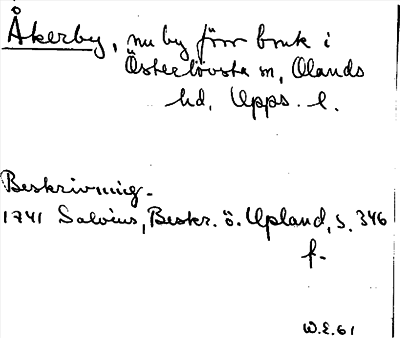 Åkerby, nu by förr bruk i
Österlövsta sn, Olands
hd, Upps. l.
Beskrivning.
1741 Salvius, Beskr. ö. Upland, s. 346
f.
W.E.61